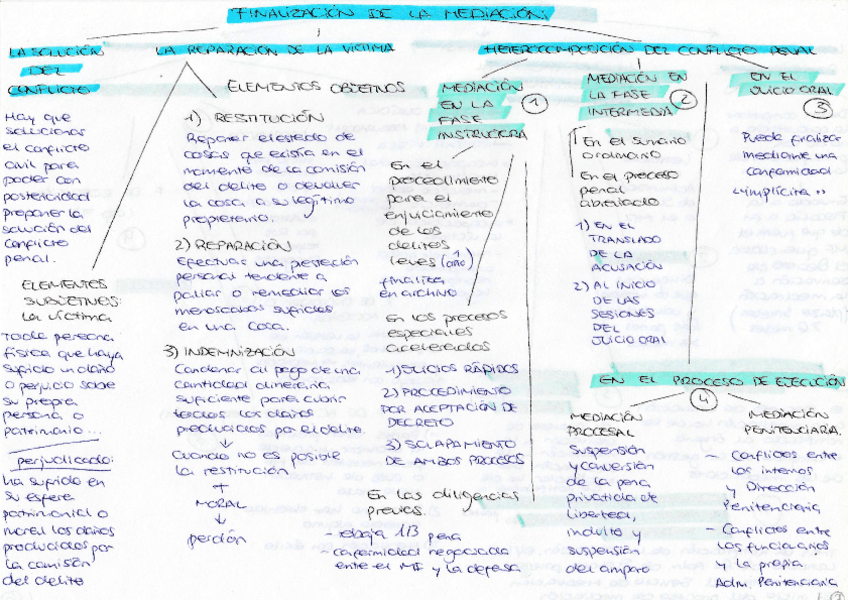 FINALIZACIÓN DE LA MEDIACIÓN:
LA SOLUCIÓN
DEL
CONFLICTO
Hay que
solucionar
el conflicto
civil para
poder con
posterioridad
proponer la
solución del
conflicto
penal.
LA REPARACIÓN DE LA VÍCTIMA
ELEMENTOS
SUBJETIVOS:
La víctima
Toda persona
física que haya
sufrido un daño
o perjuicio sobre
su propia
persona o
patrimonio...
perjudicado:
ha sufrido en
su esfera
patrimonial o
moral los daños
producidos por
la comisión
del delito
ELEMENTOS OBJETIVOS
1) RESTITUCIÓN
Reponer el estado de
cosas que existía en el
momento de la comisión
del delito o devolver
la cosa a su legítimo
propietario.
2) REPARACIÓN
Efectuar una prestación
personal tendente a
paliar o remediar los
menoscabos sufridos
en una cosa.
3) INDEMNIZACIÓN
Condenar al pago de una
cantidad dineraria
suficiente para cubrir
todos los daños
producidos por el delito.
↓
Cuando no es posible
la restitución
+
MORAL
↓
perdón
HETEROCOMPOSICIÓN DEL CONFLICTO PENAL
MEDIACIÓN
EN LA
FASE
INSTRUCTORA
1
En el
procedimiento
para el
enjuiciamiento
de los
delitos
leves (1 año)
finaliza
en archivo
En los procesos
especiales
acelerados
1) JUICIOS RÁPIDOS
2) PROCEDIMIENTO
POR ACEPTACIÓN DE
DECRETO
3) SOLAPAMIENTO
DE AMBOS PROCESOS
En las diligencias
previas.
- rebaja 1/3 pena
conformidad negociada
entre el MF y la defensa
MEDIACIÓN EN
LA FASE
INTERMEDIA
2
En el sumario
ordinario
En el proceso
penal
abreviado
1) EN EL
TRASLADO
DE LA
ACUSACIÓN
2) AL INICIO
DE LAS
SESIONES
DEL
JUICIO ORAL
EN EL
JUICIO ORAL
3
Puede finalizar
mediante una
conformidad
"implícita"
EN EL PROCESO DE EJECUCIÓN
4
MEDIACIÓN
PROCESAL
Suspensión
y conversión
de la pena
privativa de
libertad,
indulto y
suspensión
del amparo
MEDIACIÓN
PENITENCIARIA.
- Conflictos entre
los internos
y Dirección
Penitenciaria
- Conflictos entre
los funcionarios
y la propia
Adm. Penitenciaria